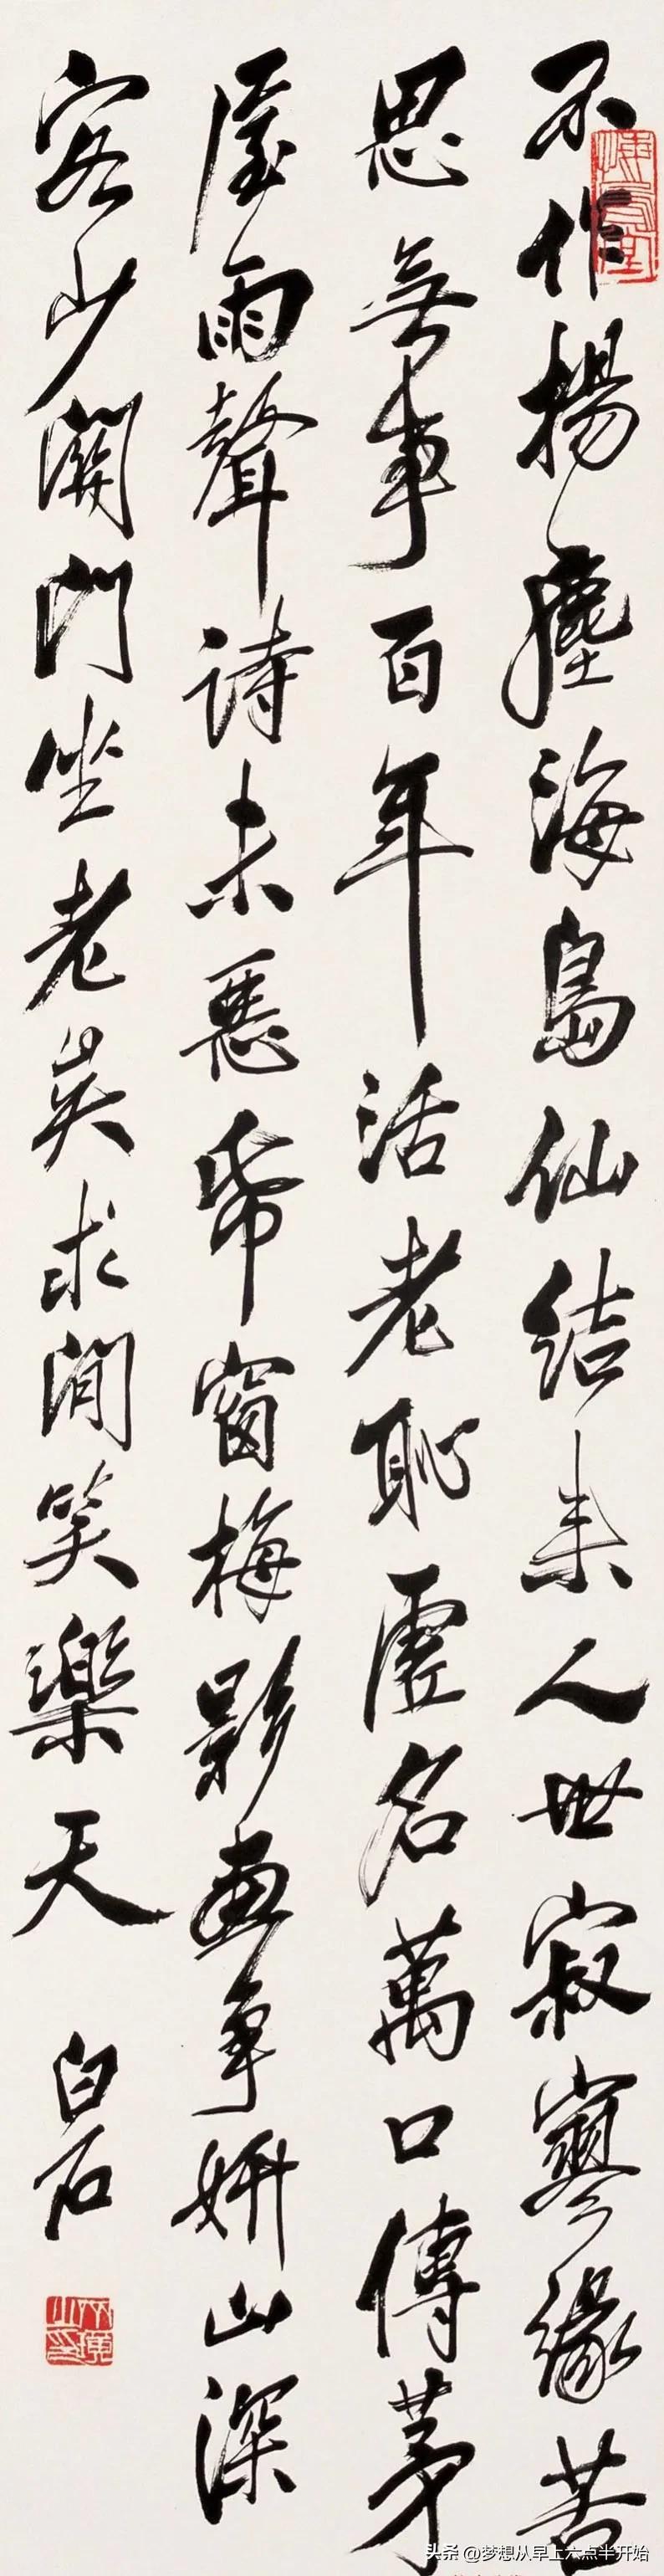 不作揚塵海島仙結来人世寂寥緣苦
思無事百年活老恥虛名萬口傳茅
屋雨聲詩未惡帋窗梅影畫爭妍山深
客少關門坐老矣求閒笑樂天
白石
头条 @梦想从早上六点半开始